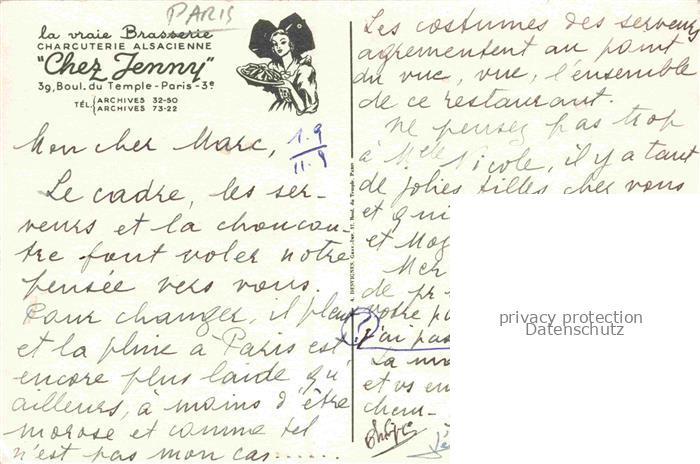 PARIS
la vraie Brasserie
CHARCUTERIE ALSACIENNE
"Chez Jenny"
39, Boul. du Temple - Paris - 3e
TÉL. { ARCHIVES 32-50
ARCHIVES 73-22
Mon cher Marc,
1.9
11.9
Le cadre, les ser-
veurs et la choucou-
tre font voler notre
pensée vers vous.
Pour changer, il pleut
et la pluie à Paris est
encore plus laide qu'
ailleurs, à moins d'être
morose et comme tel
n'est pas mon cas......
Les costumes des serveurs
agrémentent au point
du vue, vue, l'ensemble
de ce restaurant.
Ne pensez pas trop
à Melle Nicole, il y a tant
de jolies filles chez vous
et qui
et
Mer
de pr
votre
j'ai pas
La
et vs en
chem-
privacy protection
Datenschutz